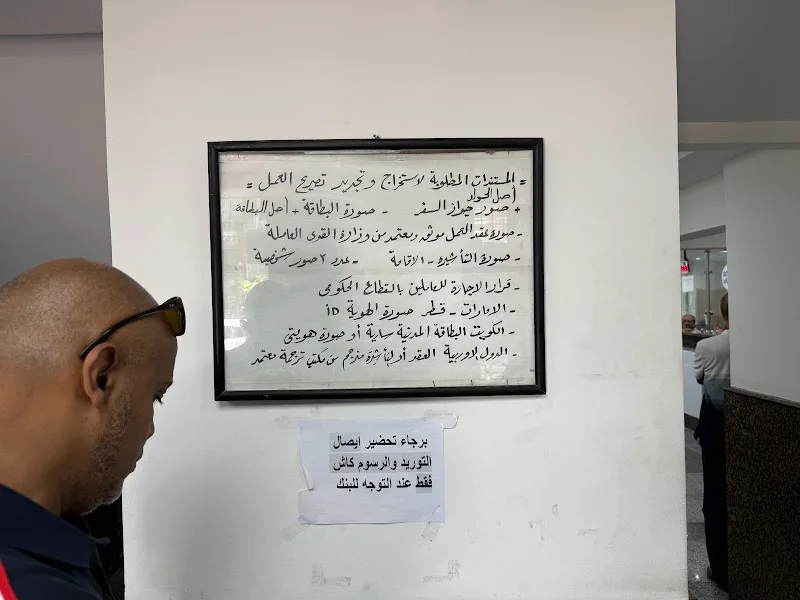 = المستندات المطلوبة لاستخراج وتجديد تصريح العمل =
أصل الجواز
+ صور جواز السفر - صورة البطاقة + أصل البطاقة
- صورة عقد العمل موثق ومعتمد من وزارة القوى العاملة
- صورة التأشيرة - الاقامة - عدد ٢ صور شخصية
- قرار الاجازة للعاملين بالقطاع الحكومى
- الامارات - قطر صورة الهوية iD
- الكويت البطاقة المدنية سارية أو صورة هويتى
- الدول الاوربية العقد أو التأشيرة مترجم من مكتب ترجمة معتمد
برجاء تحضير ايصال
التوريد والرسوم كاش
فقط عند التوجه للبنك